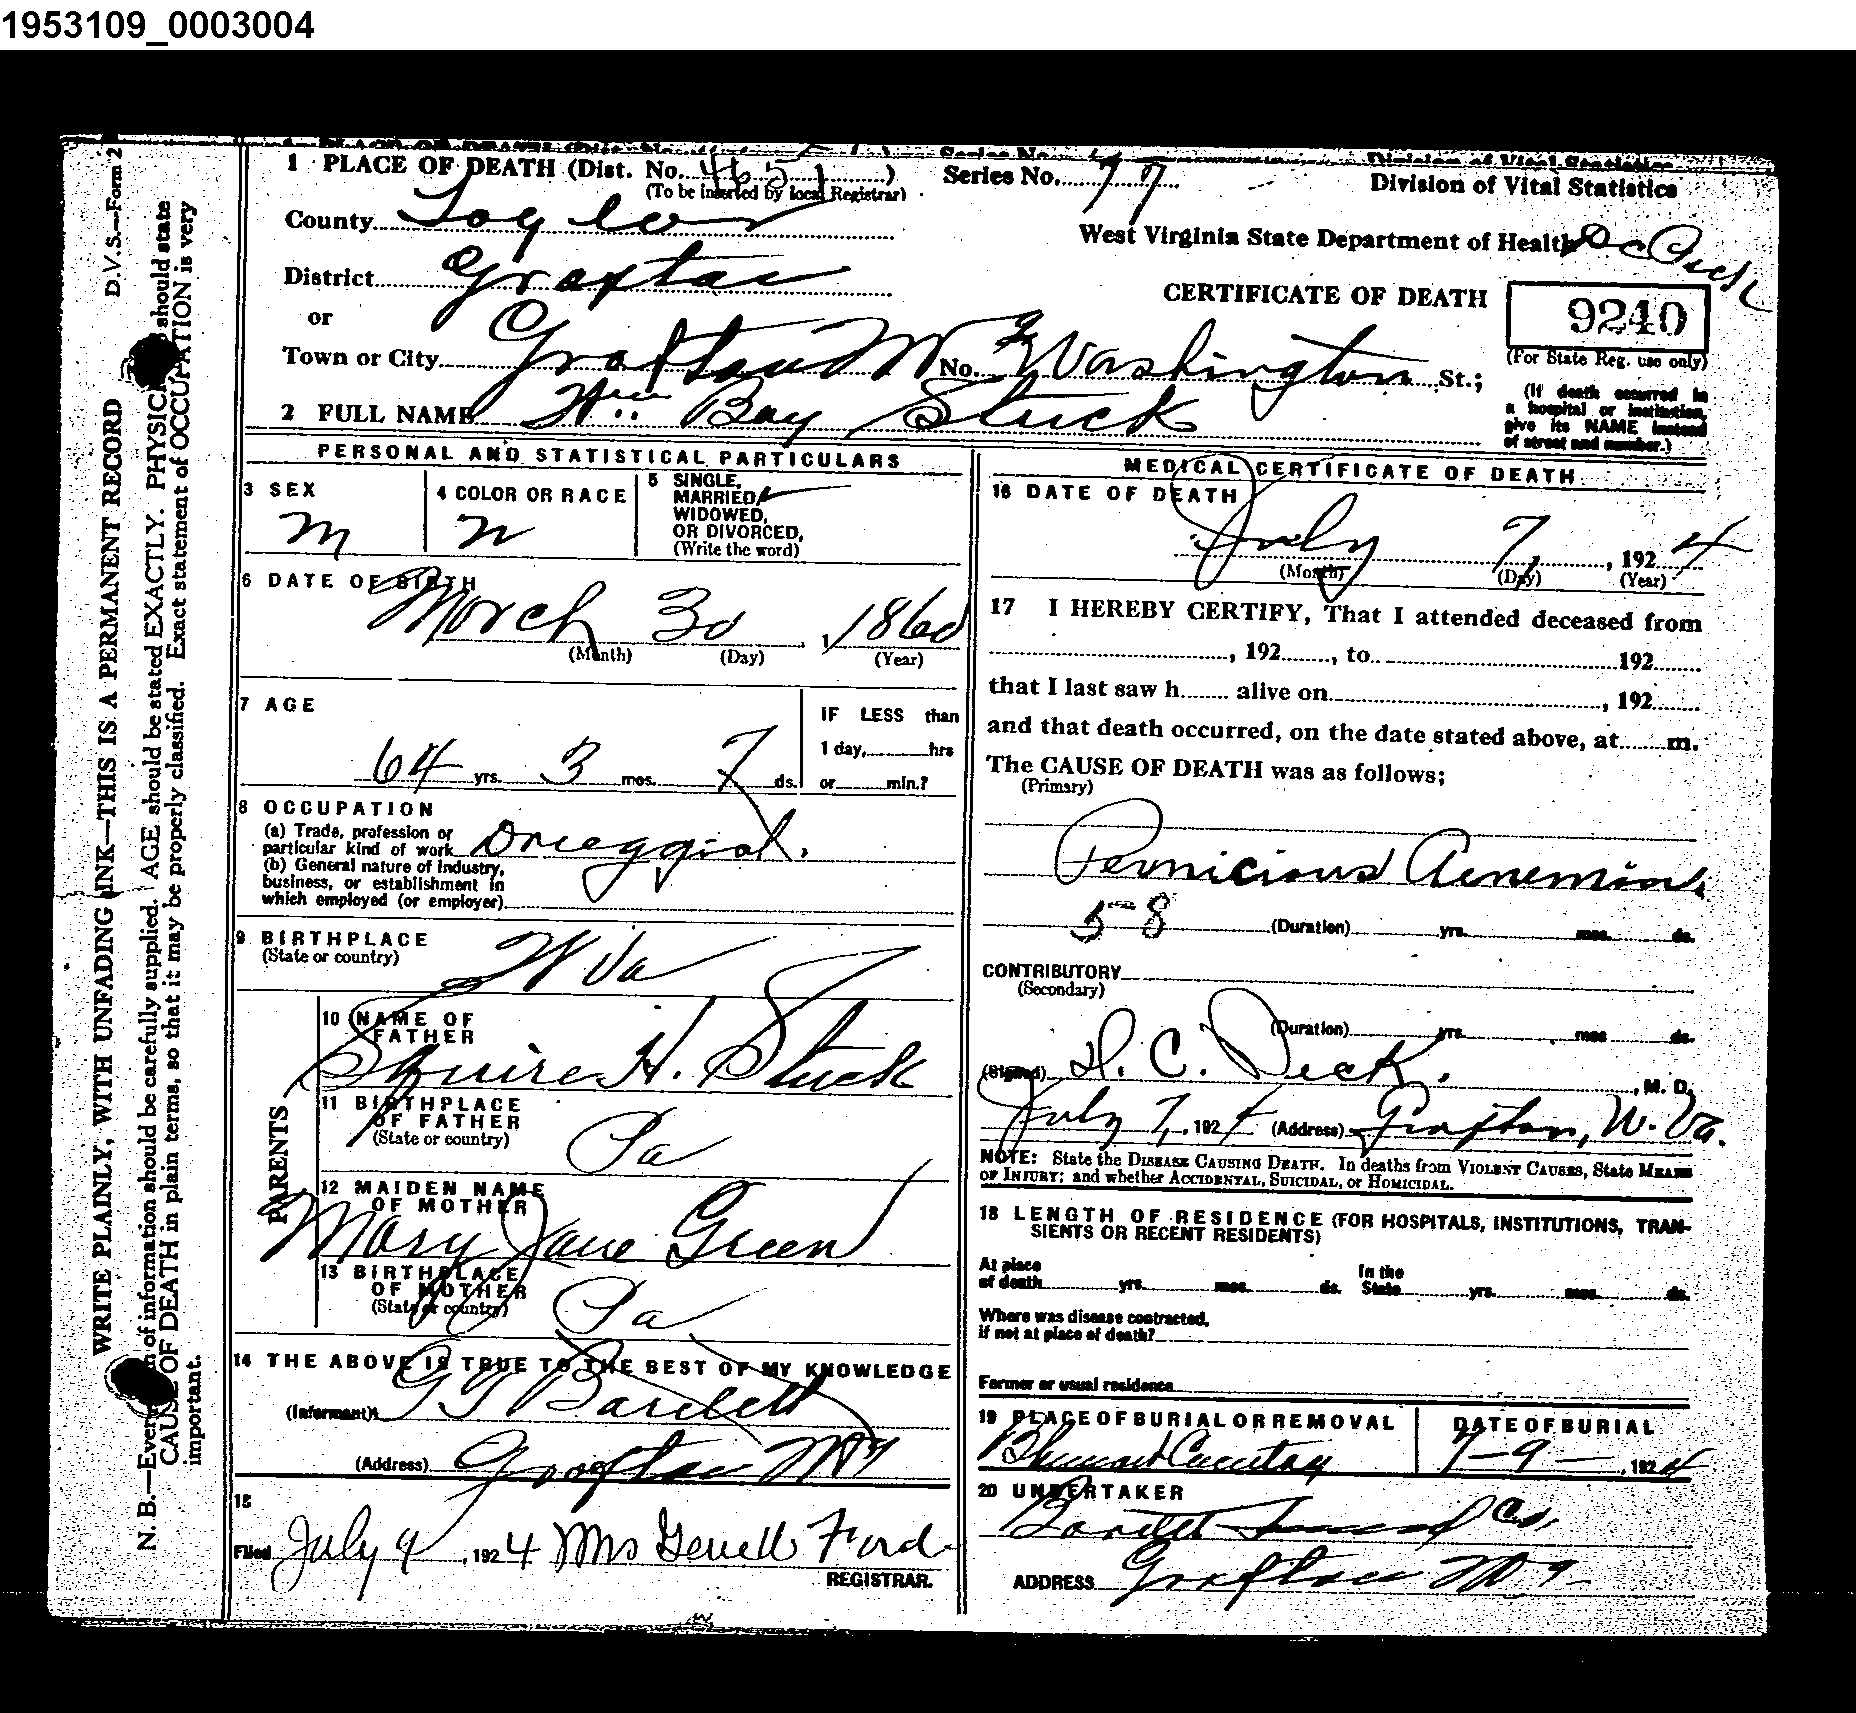 1953109_0003004
1 PLACE OF DEATH (Dist. No. 4651)
(To be inserted by local Registrar)
Series No. 77
Division of Vital Statistics
County Taylor
West Virginia State Department of Health
District Grafton
CERTIFICATE OF DEATH
9240
(For State Reg. use only)
or
Town or City Grafton No. Washington St.;
(If death occurred in
a hospital or institution,
give its NAME instead
of street and number.)
2 FULL NAME Wm Bay Stuck
PERSONAL AND STATISTICAL PARTICULARS
3 SEX
M
4 COLOR OR RACE
W
5 SINGLE,
MARRIED,
WIDOWED,
OR DIVORCED,
(Write the word)
6 DATE OF BIRTH
March 30, 1860
(Month) (Day) (Year)
7 AGE
64 yrs. 3 mos. 7 ds.
IF LESS than
1 day, hrs
or min.?
8 OCCUPATION
(a) Trade, profession or
particular kind of work Druggist.
(b) General nature of industry,
business, or establishment in
which employed (or employer)
9 BIRTHPLACE
(State or country)
W Va
PARENTS
10 NAME OF
FATHER
Squire H. Stuck
11 BIRTHPLACE
OF FATHER
(State or country)
Pa
12 MAIDEN NAME
OF MOTHER
Mary Jane Green
13 BIRTHPLACE
OF MOTHER
(State or country)
Pa
14 THE ABOVE IS TRUE TO THE BEST OF MY KNOWLEDGE
(Informant) Bartlett
(Address) Grafton
15
Filed July 9, 1924 Mrs Ford
REGISTRAR.
MEDICAL CERTIFICATE OF DEATH
16 DATE OF DEATH
July 7, 1924
(Month) (Day) (Year)
17 I HEREBY CERTIFY, That I attended deceased from
, 192 , to 192
that I last saw h alive on , 192
and that death occurred, on the date stated above, at m.
The CAUSE OF DEATH was as follows;
(Primary)
Pernicious
58 (Duration) yrs. mos. ds.
CONTRIBUTORY
(Secondary)
(Duration) yrs. mos. ds.
(Signed) C. Peck. , M. D.
July 7, 1924 (Address) Grafton, W. Va.
NOTE: State the DISEASE CAUSING DEATH. In deaths from VIOLENT CAUSES, State MEANS
OF INJURY; and whether ACCIDENTAL, SUICIDAL, or HOMICIDAL.
18 LENGTH OF RESIDENCE (FOR HOSPITALS, INSTITUTIONS, TRAN-
SIENTS OR RECENT RESIDENTS)
At place
of death yrs. mos. ds.
In the
State yrs. mos. ds.
Where was disease contracted,
if not at place of death?
Former or usual residence
19 PLACE OF BURIAL OR REMOVAL
DATE OF BURIAL
7-9-, 1924
20 UNDERTAKER
ADDRESS Grafton
D.V.S.—Form 2
WRITE PLAINLY, WITH UNFADING INK—THIS IS A PERMANENT RECORD
N. B.—Every of information should be carefully supplied. AGE should be stated EXACTLY. PHYSIC should state
CAUSE OF DEATH in plain terms, so that it may be properly classified. Exact statement of OCCUPATION is very
important.